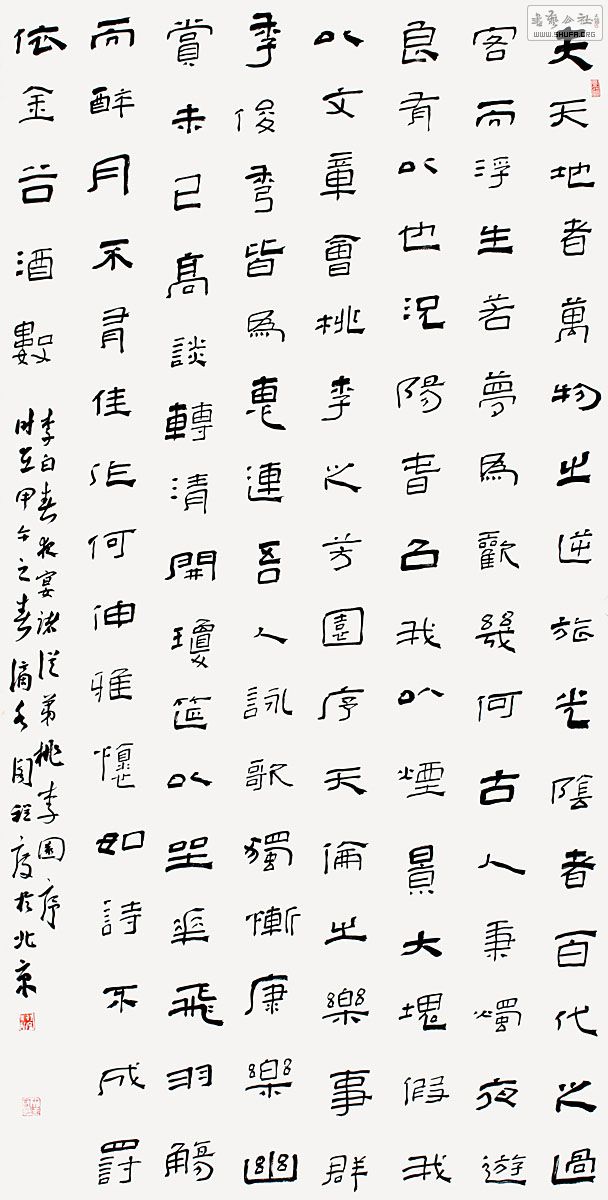 书艺公社
WWW.SHUFA.ORG
夫天地者萬物之逆旅光陰者百代之過
客而浮生若夢爲歡幾何古人秉燭夜遊
良有以也況陽春召我以煙景大塊假我
以文章會桃李之芳園序天倫之樂事群
季俊秀皆爲惠連吾人詠歌獨慚康樂幽
賞未已高談轉清開瓊筵以坐華飛羽觴
而醉月不有佳作何伸雅懷如詩不成罰
依金谷酒數
李白春夜宴諸從弟桃李園序
時在甲午之春於北京